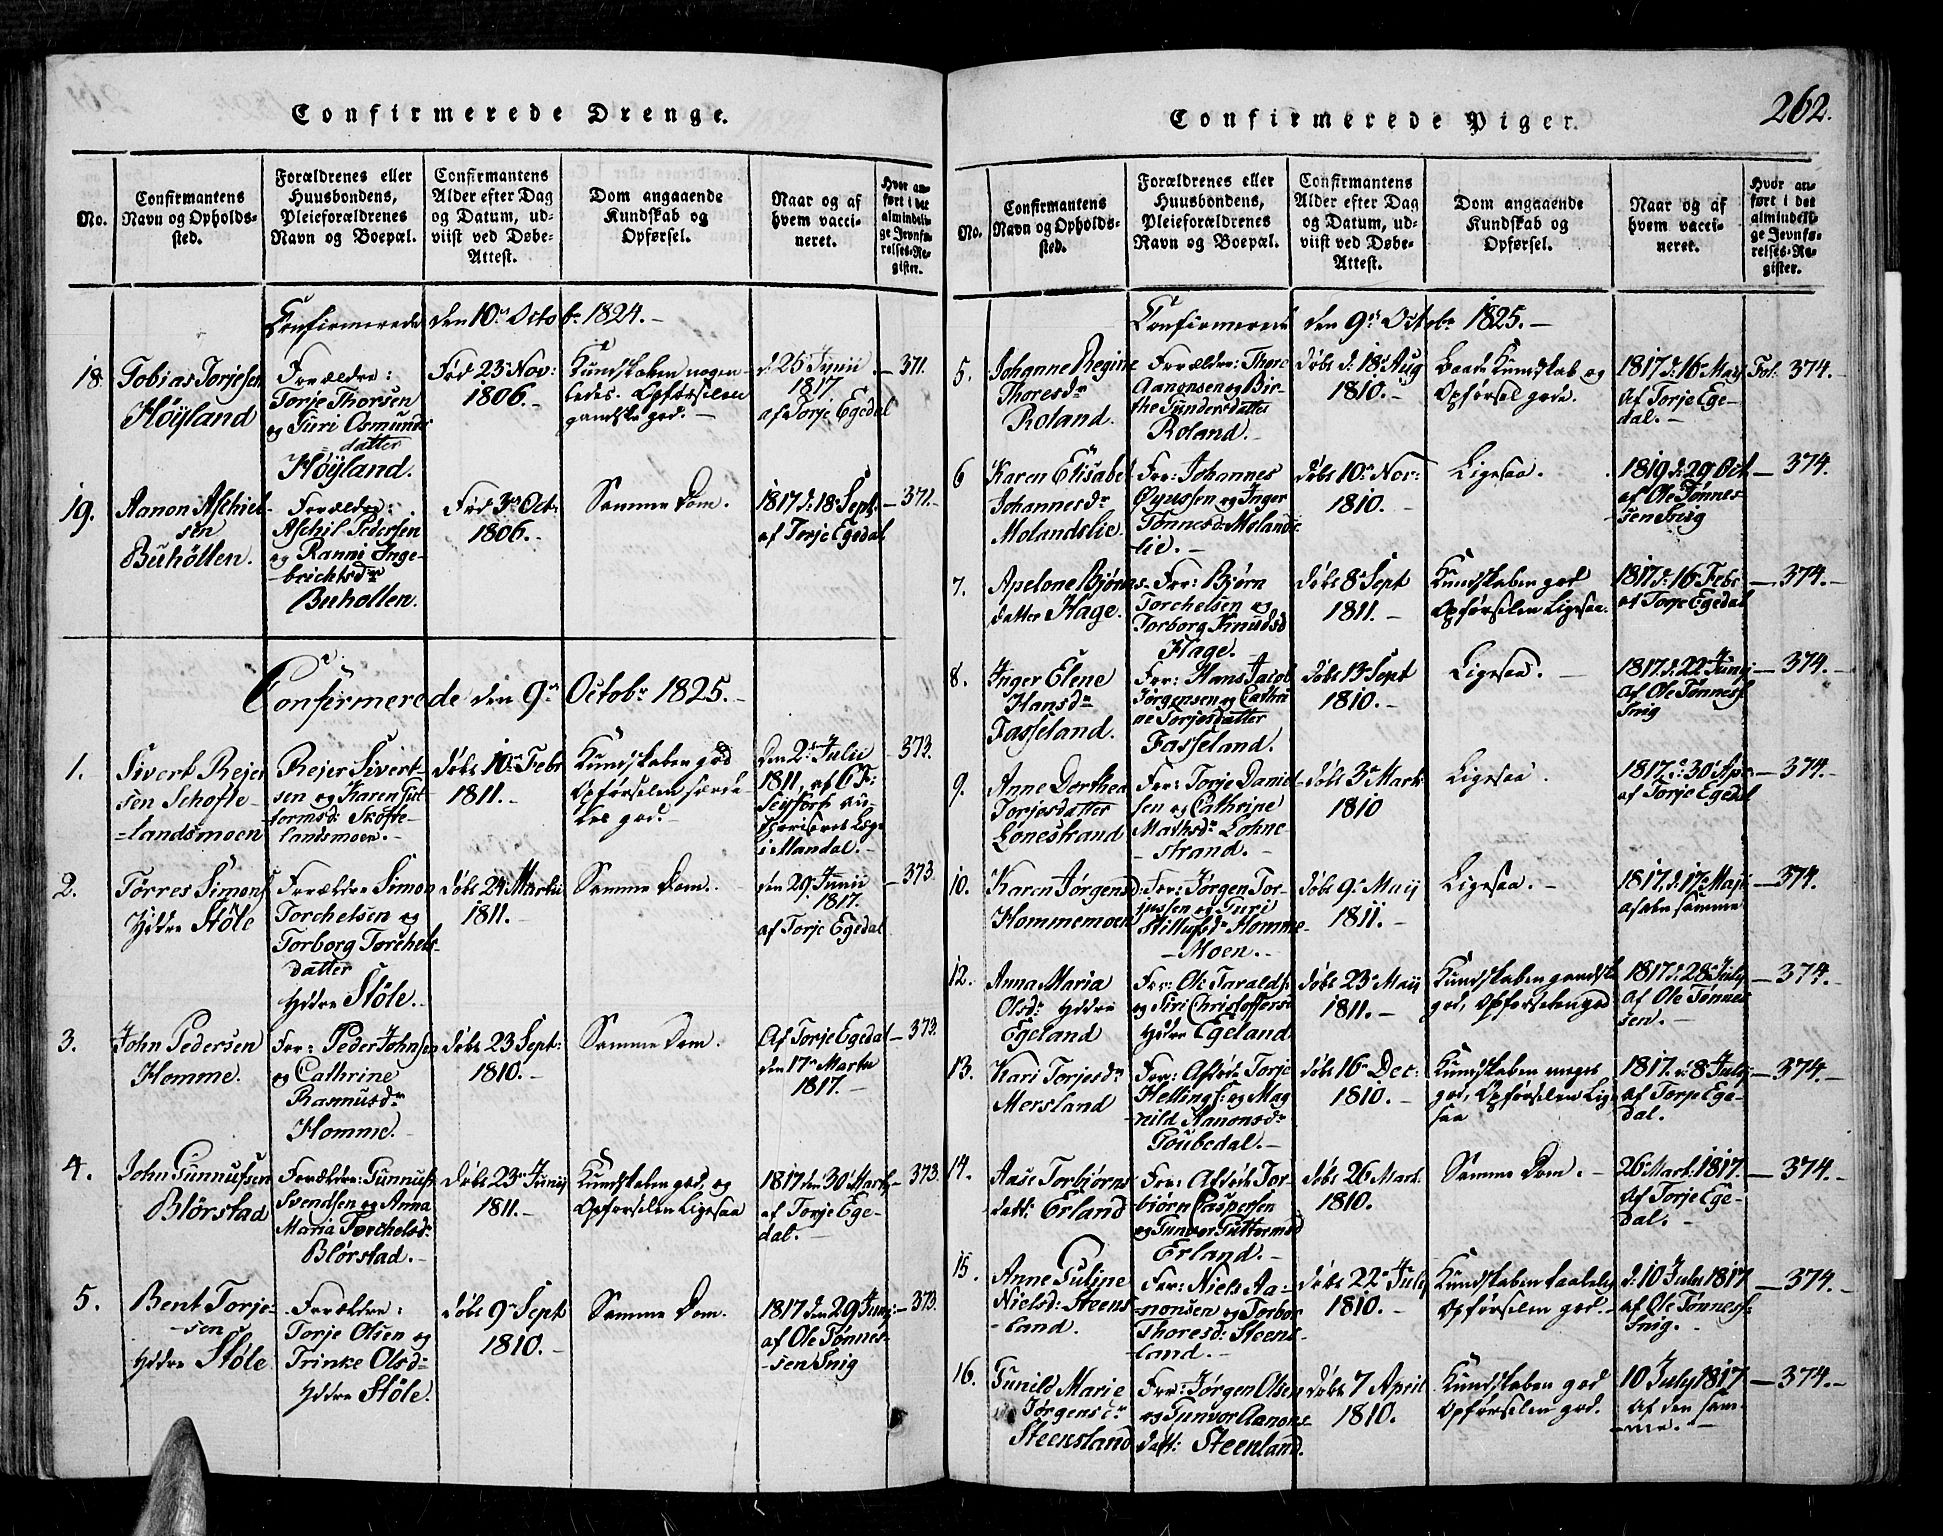 Confirmerede Drenge.
No.
Confirmantens
Navn og Opholds-
sted.
Forældrenes eller
Huusbondens,
Pleieforældrenes
Navn og Boepæl.
Confirmantens
Alder efter Dag
og Datum, ud-
viist ved Døbe-
Attest.
Dom angaaende
Kundskab og
Opførsel.
Naar og af
hvem vacci-
neret.
Hvor an-
ført i det
almindeli-
ge Jevnfø-
relses-Re-
gister.
Confirmerede den 10de Octobr 1824.-
18.
Tobias Torjesen
Höÿland
Forældre:
Torje Thorsen
og Turi Osmunds
datter
Höÿland.
Fød 23. Nov:
1806.-
Kundskaben nogen-
ledes. Opførselen
gandske god.-
d: 25 Junii
1817.
af Torje Egedal
371.
19.
Aanon Aschiel-
sen
Buhöllen.
Forældre:
Aschil Pedersen
og Ranni Inge-
brichtsdr
Buhollen.
Fød 3. Oct:
1806.-
Samme Dom.
1817 d: 18 Sept:
af Torje Egedal
371.-
Confirmerede den 9de Octobr 1825.-
1.
Sivert Rejer
sen Schofte-
=landsmoen
Rejer Sivert-
sen og Karen Gut
tormsd: Skofte-
landsmoen.-
døbt 10. Febr
1811.-
Kundskaben god
Opførselen særde-
les god.-
Den 2. Julii
1811, af
i Mandal.-
373.
2.
Tørres Simons
Ÿdre Støle
Forældre Simon
Torchelsen og
Torborg Torchels-
datter
Ÿdre Støle.-
døbt 24 Martii
1811.-
Samme Dom.
den 29. Junii
1817.
af Torje Egedal
373.
3.
John Pedersen
Homme.
For: Peder Johnsen
og Cathrine
Rasmusdr
Homme.-
døbt 23 Sept:
1810.-
Samme Dom.
Af Torje Egedal
den 17. Martii
1817.-
373.
4.
John Gunnufsen
Blørstad
Forældre: Gunnuf
Svendsen og Anna
Maria Torchelsd:
Blørstad.-
døbt 23. Junij
1811.-
Kundskaben god, og
Opførselen Ligesaa
1817 den 30 Marts
af Torje Ege-
dal.-
373.
5.
Bent Torje-
-sen
Ÿdre Støle
Forældre:
Torje Olsen og
Trinke Olsd:
Ÿdre Støle.
døbt 9. Sept
1810.-
Samme Dom.
1817 den 29 Junj
af Ole Tønnes-
-sen Snig
373.
262.
Confirmerede Piger.
No.
Confirmantens
Navn og Opholds-
sted.
Forældrenes eller
Huusbondens,
Pleieforældrenes
Navn og Boepæl.
Confirmantens
Alder efter Dag
og Datum, ud-
viist ved Døbe-
Attest.
Dom angaaende
Kundskab og
Opførsel.
Naar og af
hvem vacci-
neret.
Hvor an-
ført i det
almindeli-
ge Jevnfø-
relses-Re-
gister.
Confirmerede den 9de Octobr 1825.-
5.
Johanne Regine
Thoresdr
Roland.
Forældre: Thore
Aanonsen og Bir-
the Gundersdatter
Roland.-
døbt d: 18. Aug
1810.-
Baade Kundskab og
Opførsel gode.
1817 d: 16. May
Af Torje Ege-
dal.-
Fol. 374.-
6
Karen Elisabet
Johannesdr
Molandslie.
For: Johannes
Øÿussen og Inger
Tønnesd: Molands-
lie.-
døbt 10. Nov:
1810.-
Ligesaa.
1819 d: 29 Oct
af Ole Tønnes-
sen Snig
374.
7.
Apelone Bjørns-
datter Hage.
For: Bjørn
Torchelsen og
Torborg Knudsd
Hage.-
døbt 8. Sept
1811.-
Kundskaben god
Opførselen Ligesaa.
1817 d: 16 Febr
af Torje Egedal
374.-
8.
Inger Elene
Hansdr
Fasseland.
For: Hans Jacob
Jørgensen og Cathri
ne Torjesdatter
Fasseland.
døbt 13. Sept
1810.-
Ligesaa.-
1817. d. 22. Junj
af Ole Tønnes.
Snig
374.
9.
Anne Dorthea
Torjesdatter
Lonestrand
For: Torje Daniel
sen og Cathrine
Mathsdr Lohne-
-strand.-
døbt 3. Mart:
1810
Ligesaa.
1817. d: 30 Apr
af Torje Egedal
374.-
10.
Karen Jørgensd:
Hommemoen
For: Jørgen Tor-
jussen og Turi
Homme-
-Moen.-
døbt 9. Maij
1811.-
Ligesaa.-
1817. d: 17. Maji
af den samme
374.
12.
Anna Maria
Olsd: Ÿdre
Egeland
For: Ole Taralds.
og Siri Christoffersd
Ÿdre Egeland.
døbt 23. Maij
1811.-
Kundskaben gandske
god, Opførselen god
1817 d. 28. July
af Ole Tønnes
sen.-
374.-
13.
Kari Torjesdr
Mersland
For: Afdøde Torje
og Mag
nild Aanonsdr
Goubedal.-
døbt 16. Dec:
1810.-
Kundskaben meget
god, Opførselen Lige
saa
1817. d: 8 July
af Torje Ege-
dal.
374.-
14.
Aase Torbjørns
datt: Erland
For: Afdøde Tor-
biørn Caspersen
og Gunvor Guttormsd
Erland.-
døbt 26 Mart.
1810.
Samme Dom.-
26 Mart. 1817.
Af Torje Ege-
dal.-
374.-
15.
Anne Guline
Nielsd: Steens
-land.
For: Niels Aa-
=nonsen og Torbor
Thoresd: Steens-
land.-
døbt 22. July
1810.-
Kundskaben taalelig
Opførselen god.-
d: 10 July 1817
af Ole Tønnes.
Snig.-
374.-
16.
Gunild Marie
Jørgensdr
Steensland
For: Jørgen Olsen
og Gunvor Aanons
datt: Steenland.
døbt 7 April
1810.-
Kundskaben god
Opførselen god.
10 July 1817
af den sam-
-me.-
374.-